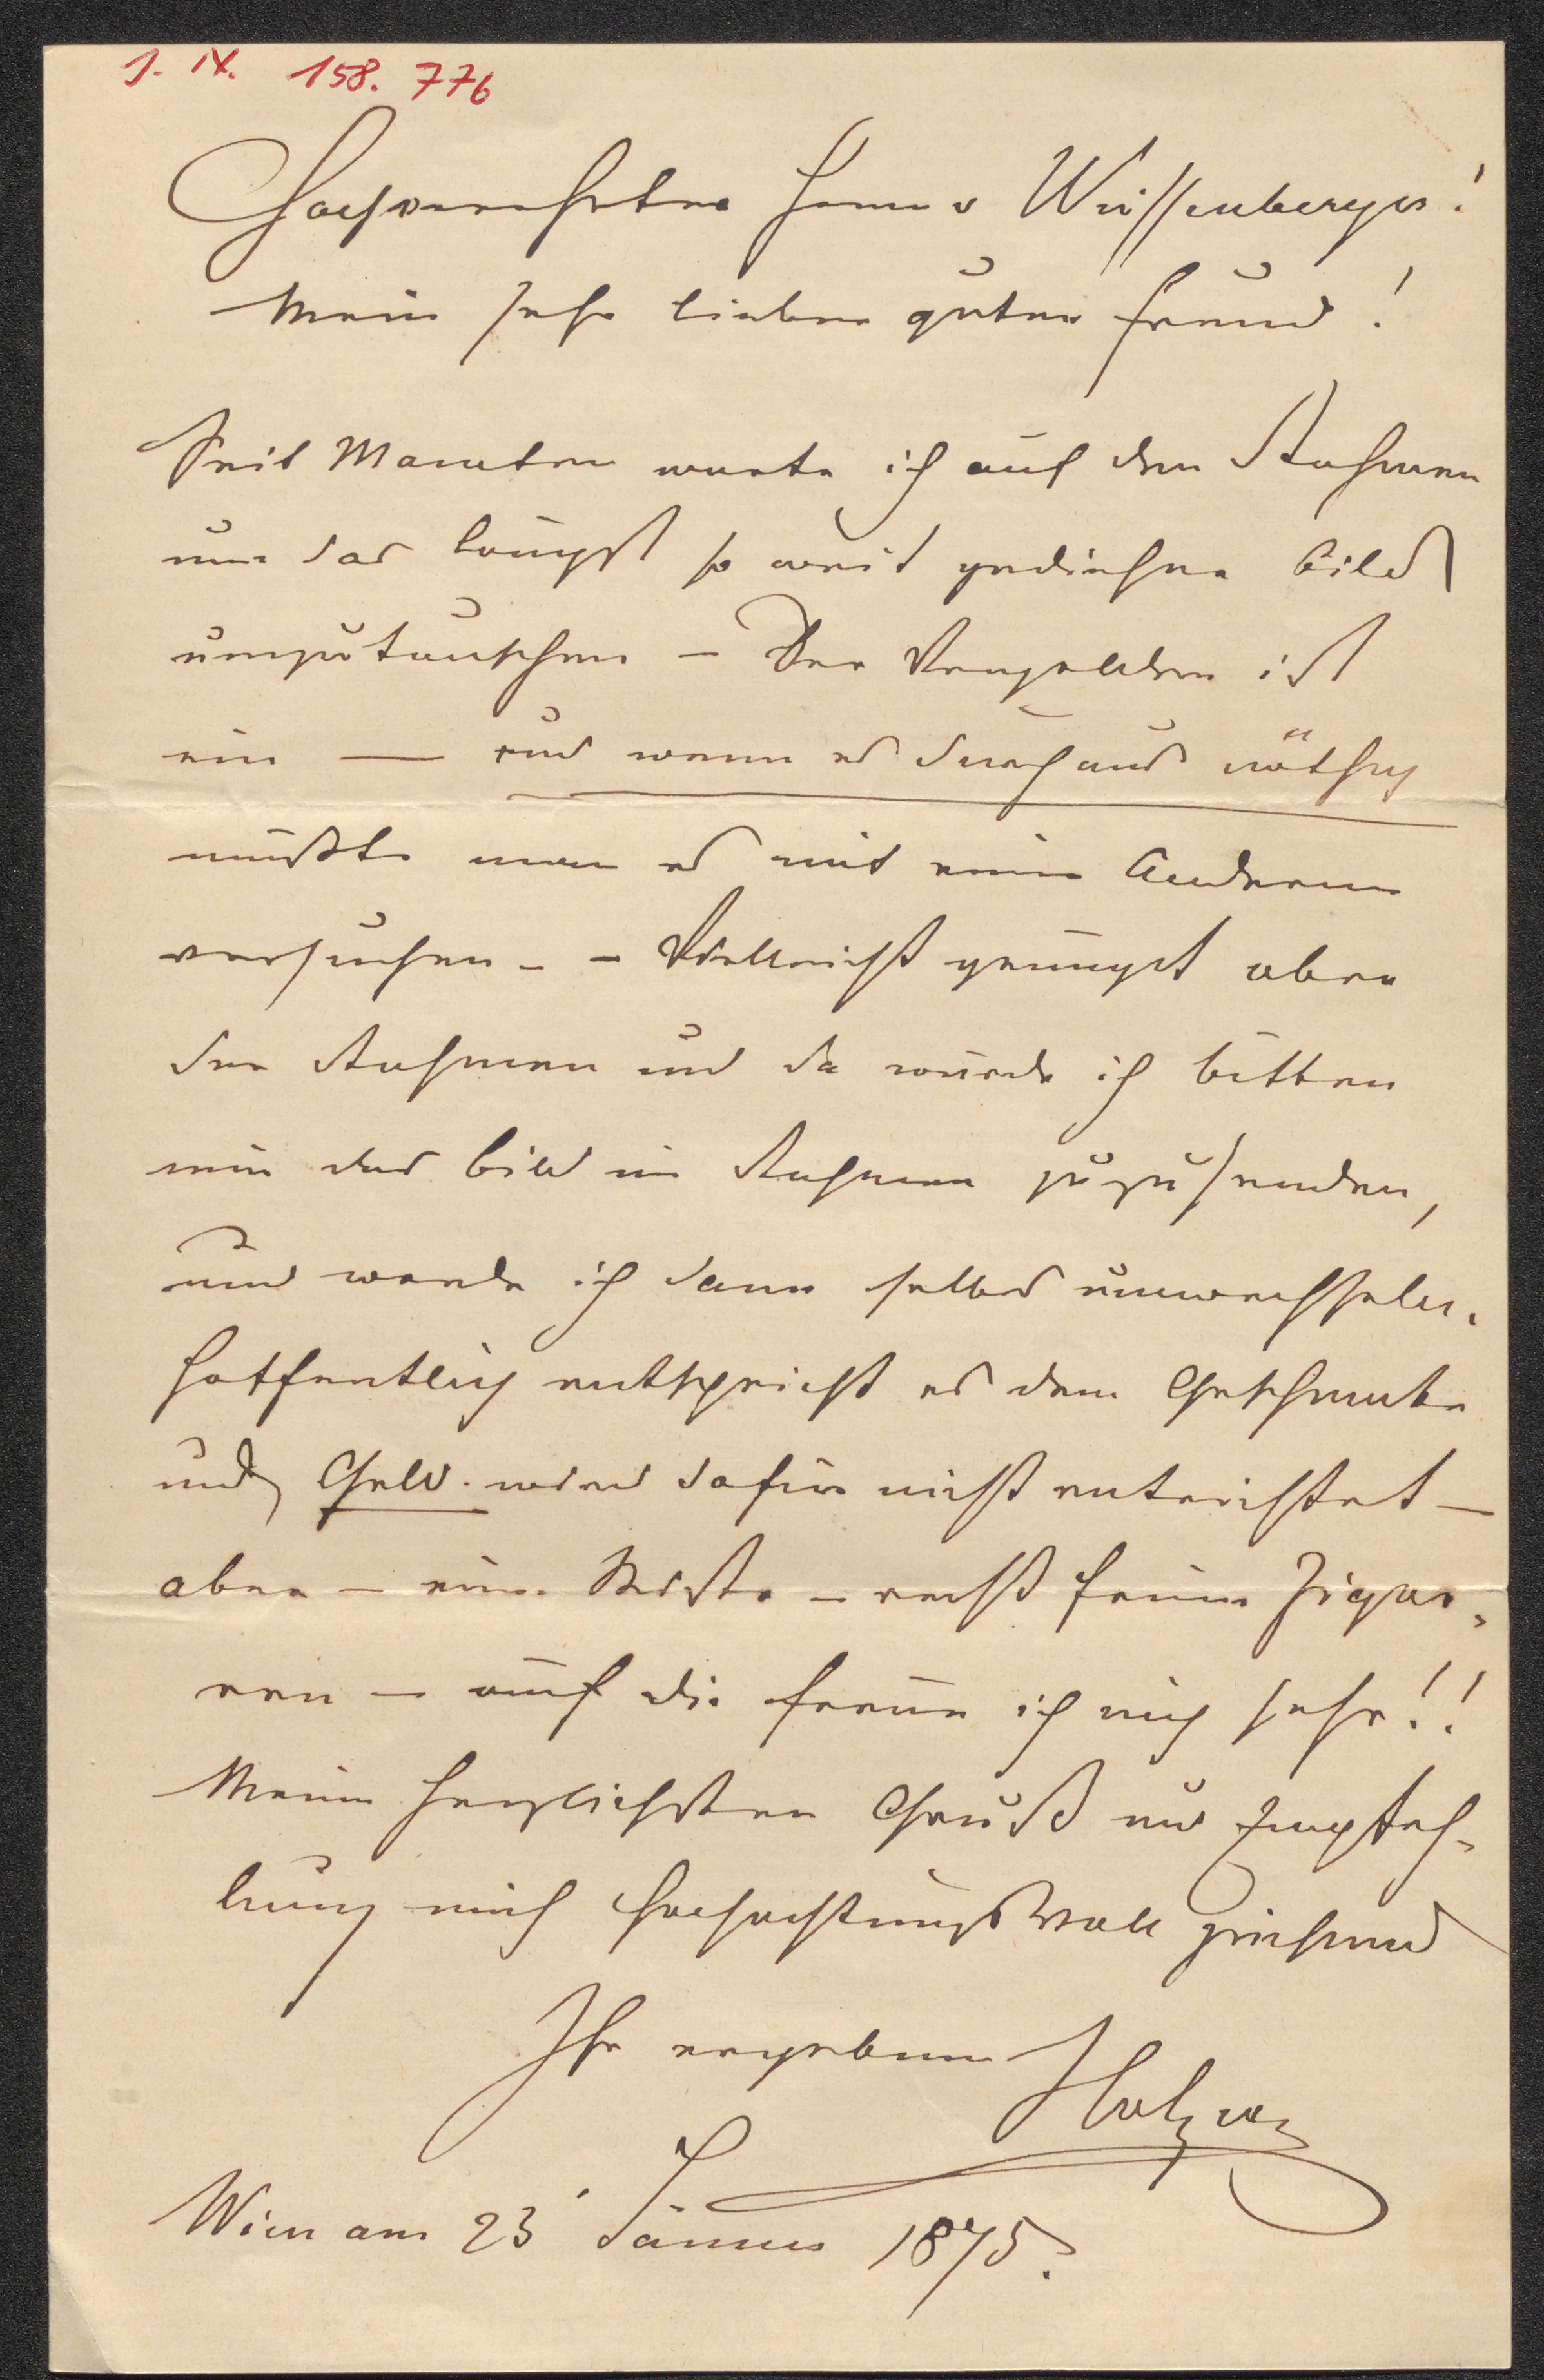 J. IX. 158.776
Hochverehrter Herr v Wissenberger!
Mein sehr lieber guter Freund!
Seit Monaten warte ich auf den Rahmen
um das längst so weit gediehene Bild
umzutauschen – Der ist
ein — und wenn es durchaus nöthig
müßte man es mit einem Anderen
versuchen – – Vielleicht genügt aber
der Rahmen und da würde ich bitten
mir das Bild im Rahmen zuzusenden,
und werde ich dann selbes umwechseln.
Hoffentlich entspricht es dem Geschmacke
und Geld wird dafür nicht entrichtet –
aber – eine Kiste – recht feine Zigar-
ren – auf die freue ich mich sehr!!
Meinen herzlichsten Gruß und Empfeh-
lung mich hochachtungsvoll zeichnend
Ihr ergebener
Wien am 23 Jänner 1875.